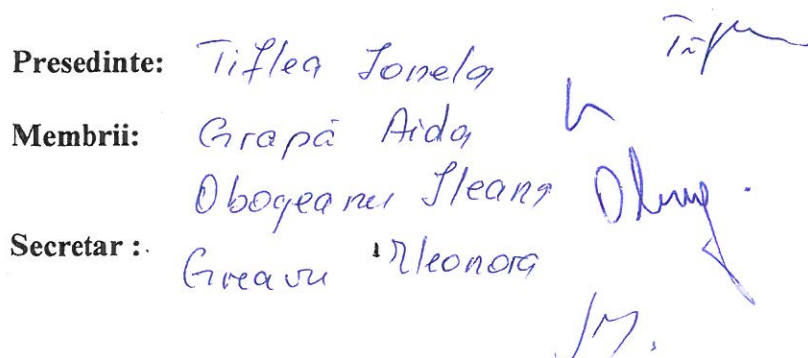 Presedinte: Tiflea Ionela
Membrii: Grapă Aida
Obogeanu Ileana
Secretar : Greavu Eleonora